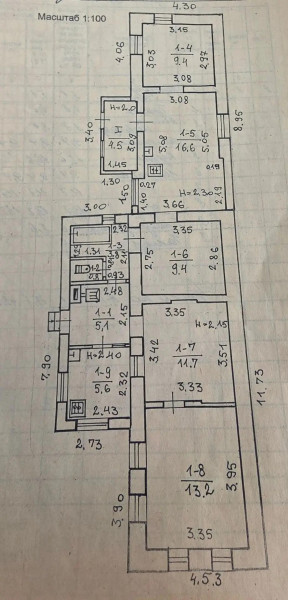 Масштаб 1:100
4.30
3.15
4.06
3.03
1-4
9.4
2.97
3.08
3.08
н=2.0
I
4.5
3.09
3.40
1.45
1.30
5.08
1-5
16.6
5.05
8.95
0.19
0.27
н=2.30
2.19
1.50
1.40
3.66
3.00
2.32
3.35
1-3
1.31
2.75
1-6
9.4
2.86
1-2
0.8
0.93
2.48
1-1
5.1
2.15
3.35
н=2.15
3.42
1-7
11.7
3.51
3.33
н=2.40
1-9
5.6
2.32
2.43
7.90
2.73
11.73
1-8
13.2
3.95
3.90
3.35
4.53